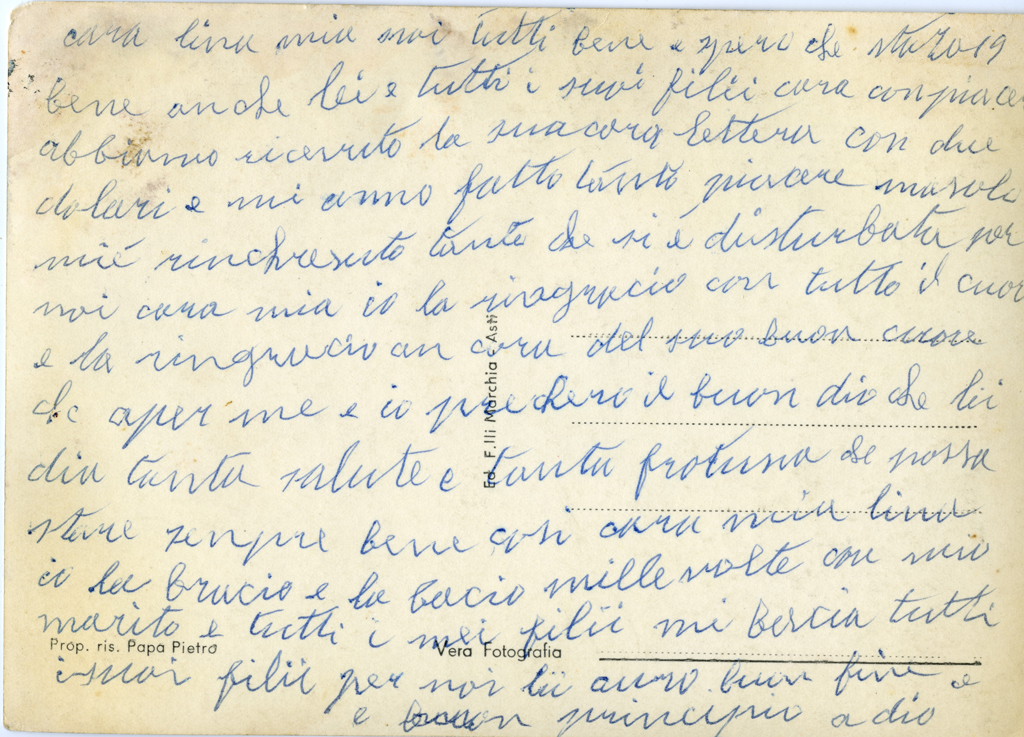 cara lina mia noi tutti bene e spero che
bene anche lei e tutti i suoi filii cara con piacer
abbiamo ricevuto la sua cara lettera con due
dolari e mi anno fatto tanto piacere ma solo
mié rinchresuto tanto che si é disturbata per
noi cara mia io la ringracio con tutto il cuor
e la ringracio an cora del suo buon cuore
che a per me e io prechero il buon dio che lii
dia tanta salute e tanta frotuna che possa
stare senpre bene cosi cara mia lina
io la bracio e la bacio mille volte con mio
marito e tutti i mei filii mi bescia tutti
i suoi filii per noi lii auro buon fine e
e buon principio a dio
Ed. F.lli Marchia - Asti
Prop. ris. Papa Pietro
Vera Fotografia